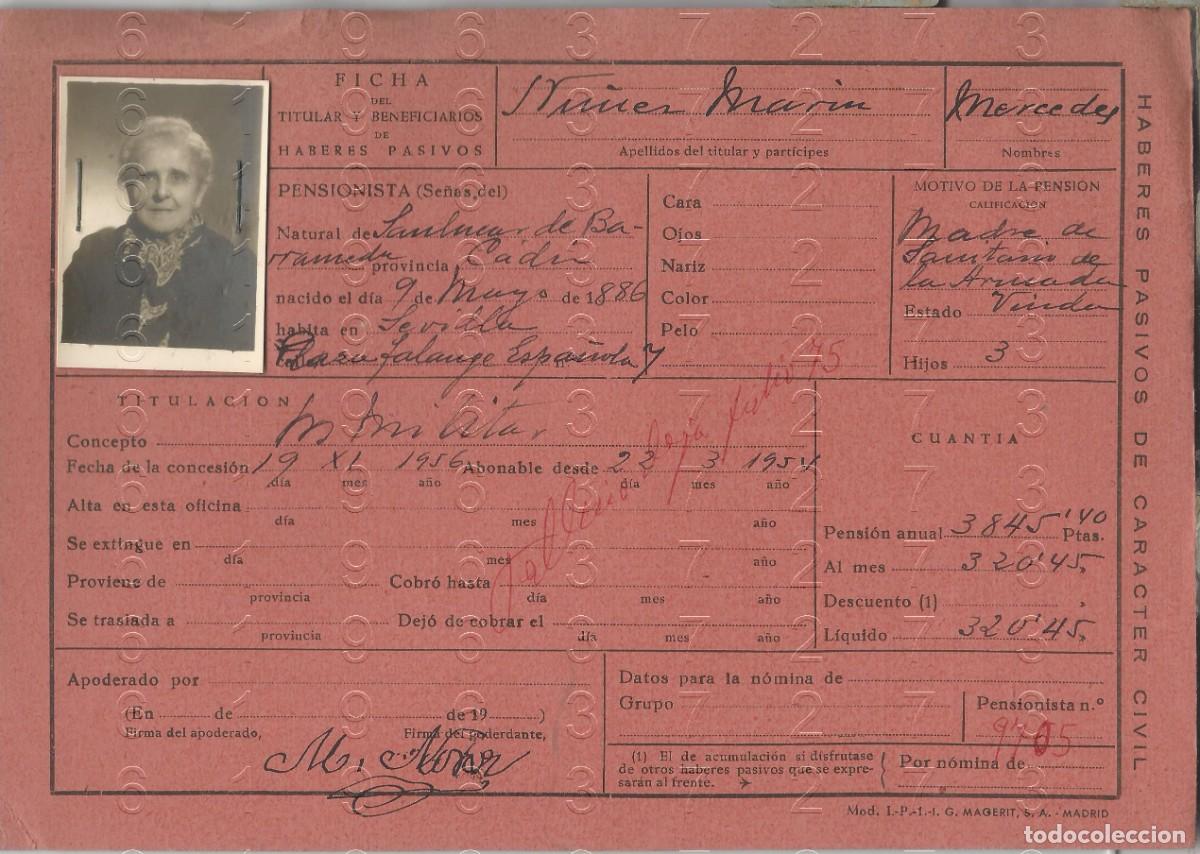 FICHA
DEL
TITULAR Y BENEFICIARIOS
DE
HABERES PASIVOS
Nuñez Marin
Apellidos del titular y partícipes
Mercedes
Nombres
PENSIONISTA (Señas del)
Natural de Sanlucar de Ba-
rrameda provincia Cadiz
nacido el día 9 de Mayo de 1886
habita en Sevilla
Plaza Falange Española nº 7
Cara
Ojos
Nariz
Color
Pelo
MOTIVO DE LA PENSIÓN
CALIFICACIÓN
Madre de
Sanitario de
la Armada
Estado Viuda
Hijos 3
TITULACION
Concepto M. Militar
Fecha de la concesión 19 XI 1956 Abonable desde 22 3 1954
día mes año día mes año
Alta en esta oficina
día mes año
Se extingue en
día mes año
Proviene de Cobró hasta
provincia día mes año
Se traslada a Dejó de cobrar el
provincia día mes año
Falleció Baja Julio 75
CUANTIA
Pensión anual 3845'40 Ptas.
Al mes 320'45
Descuento (1)
Líquido 320'45
Apoderado por
(En de de 19 )
Firma del apoderado, Firma del poderdante,
M. Nuñez
Datos para la nómina de
Grupo
Pensionista n.º
9705
(1) El de acumulación si disfrutase
de otros haberes pasivos que se expre-
sarán al frente.
Por nómina de
HABERES PASIVOS DE CARACTER CIVIL
Mod. I.-P.-1.-I. G. MAGERIT, S. A. - MADRID
6 1 9 6 6 3 7 2 7 3
todocoleccion